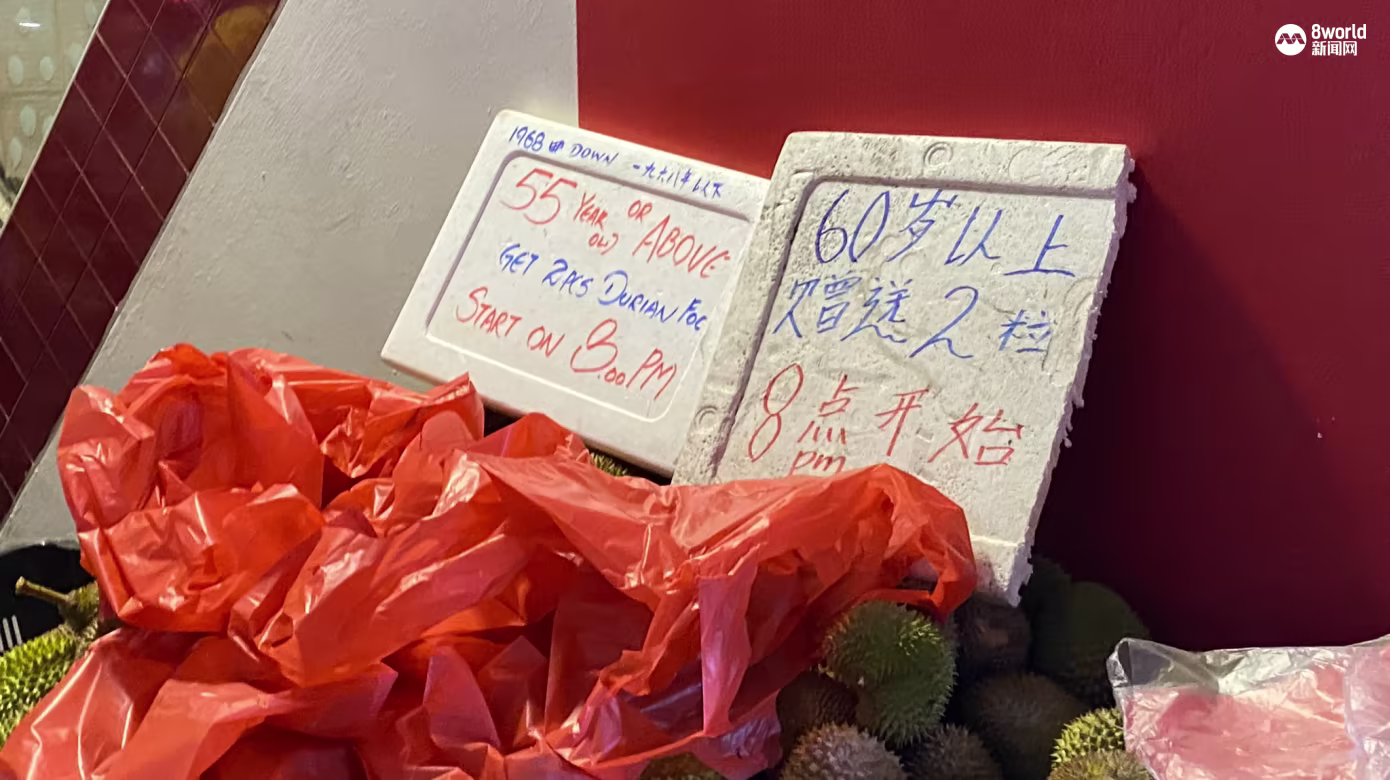 8world
新闻网
1968 DOWN 一九六八年以下
55 YEAR OLD OR ABOVE
GET 2PCS DURIAN FOC
START ON 8.00 PM
60岁以上
赠送2粒
8点开始
pm